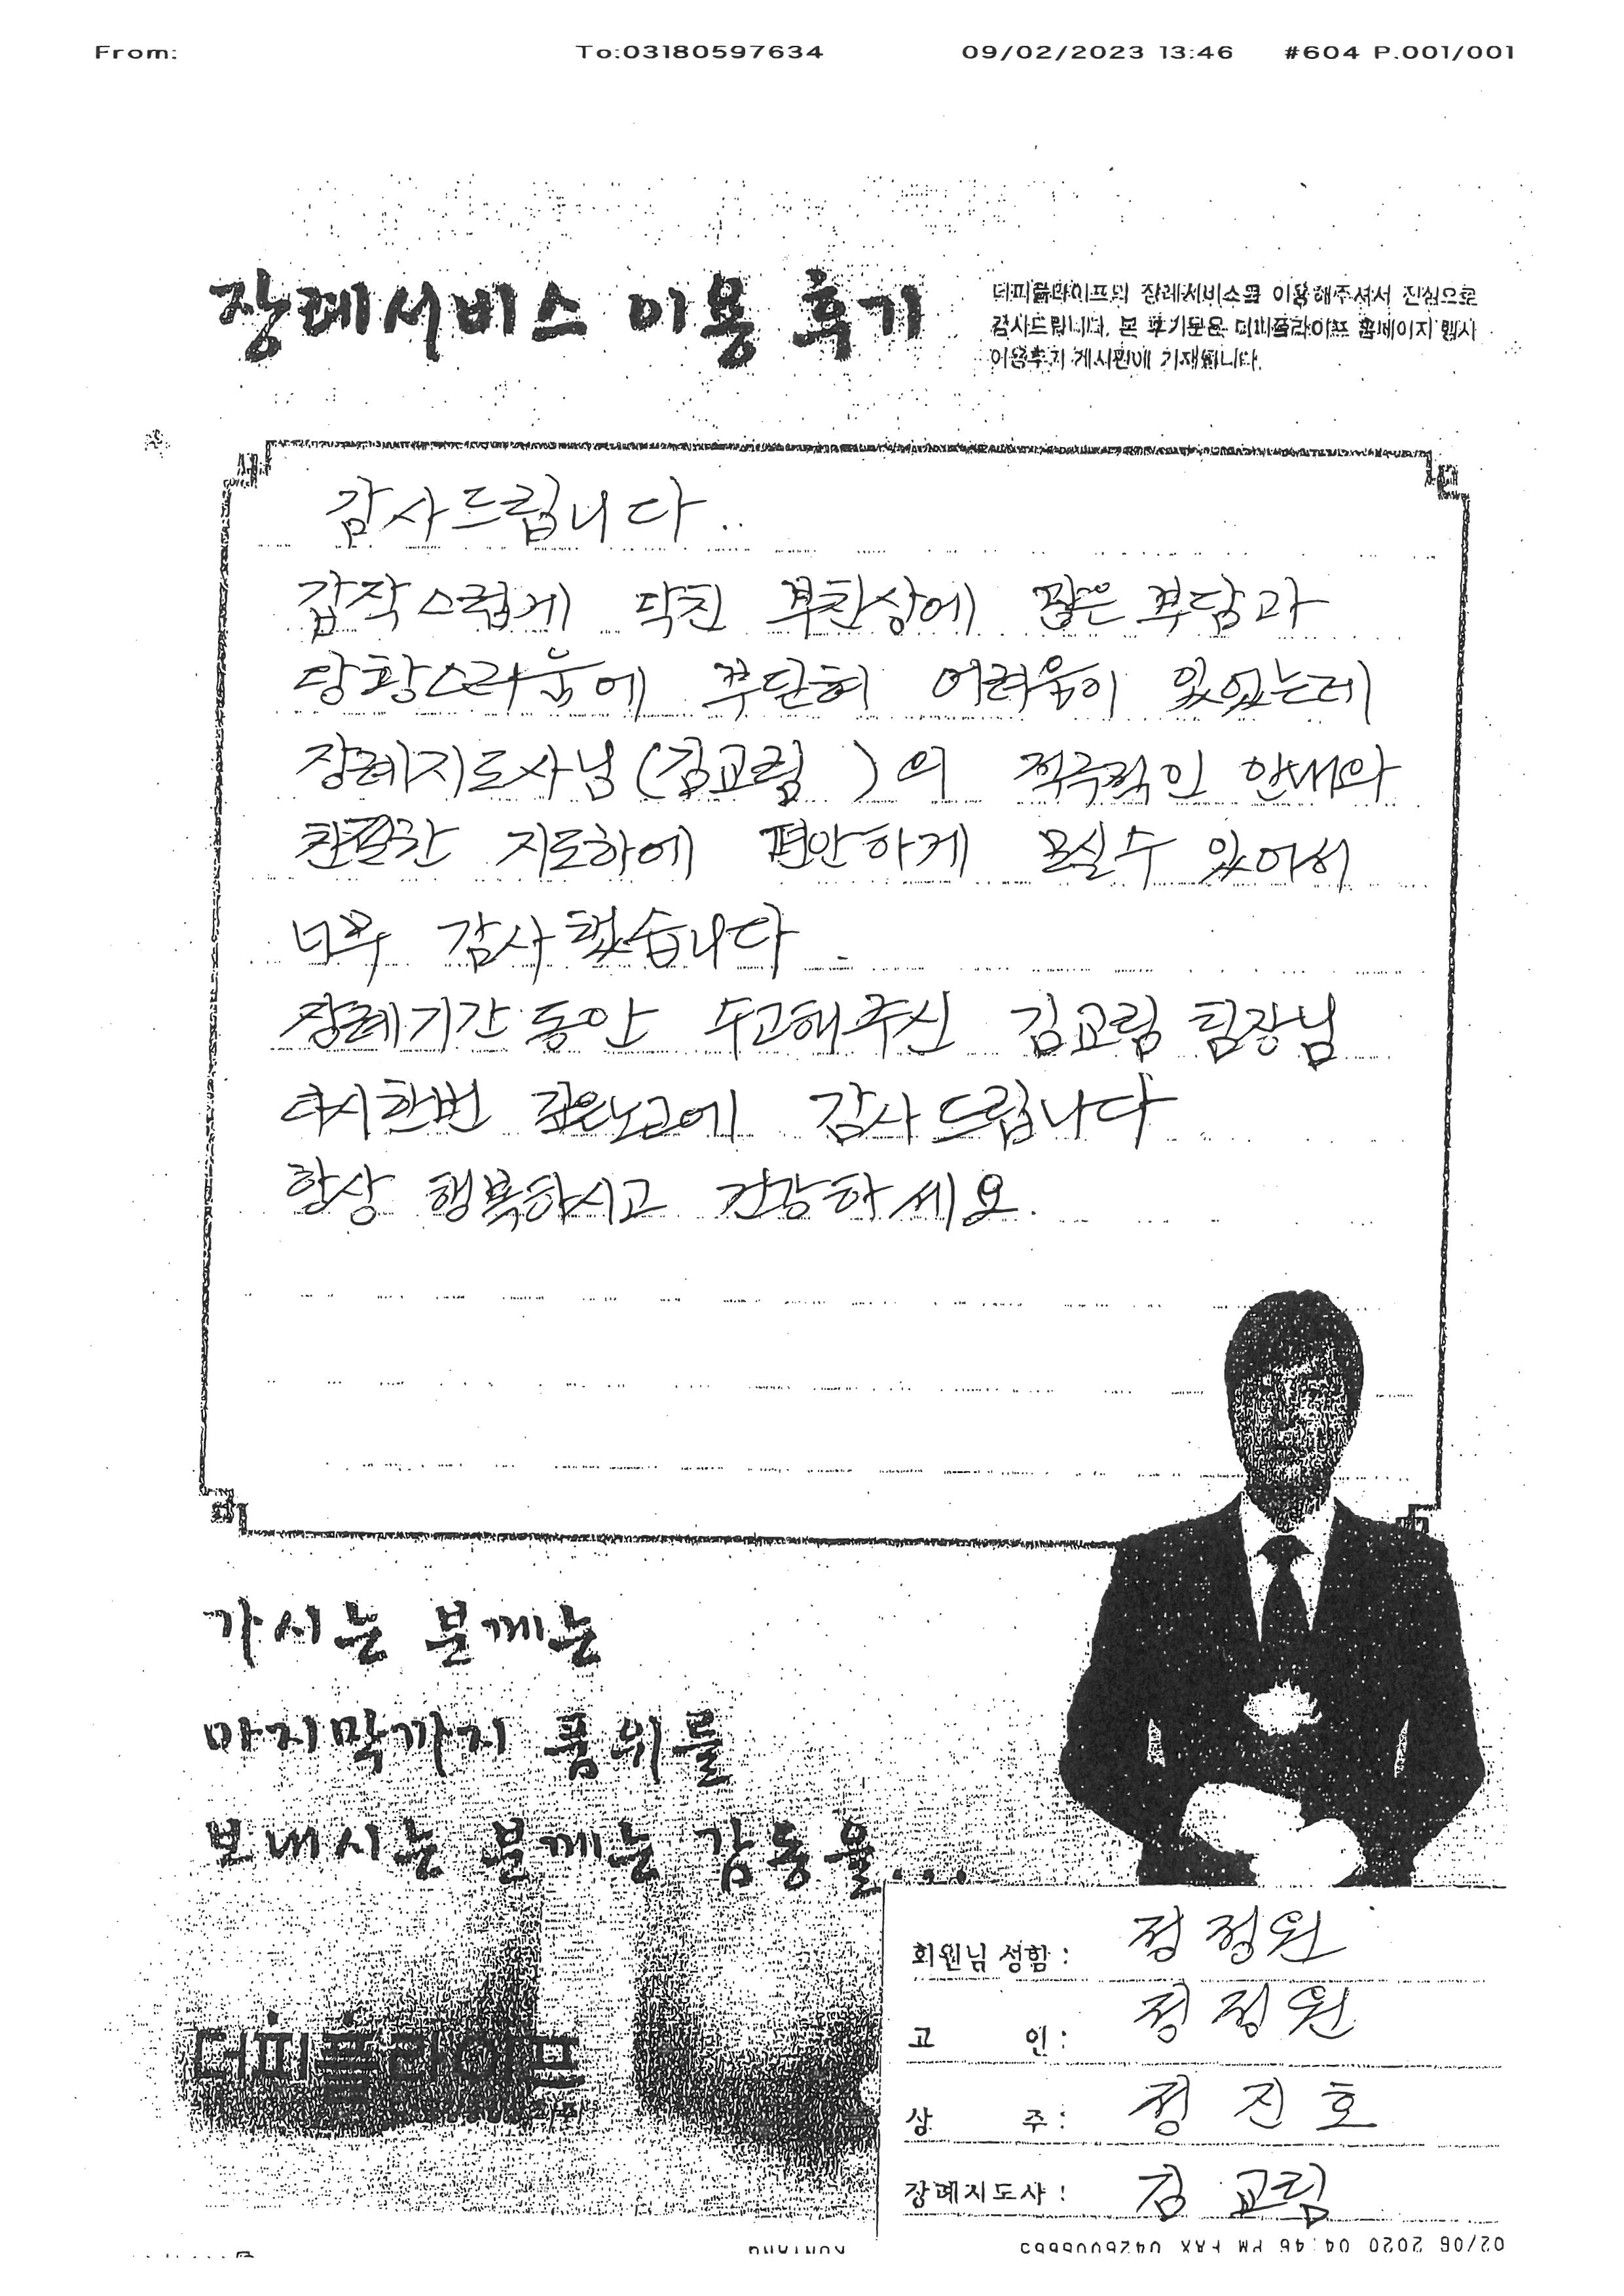 From: To:03180597634 09/02/2023 13:46 #604 P.001/001
장례서비스 이용 후기
더피플라이프의 장례서비스를 이용해주셔서 진심으로
감사드립니다. 본 후기문은 더피플라이프 홈페이지 행사
이용후기 게시판에 기재됩니다.
감사드립니다..
갑작스럽게 닥친 부친상에 많은 부담과
당황스러움에 무단히 어려움이 있었는데
장례지도사님(김교림 )의 적극적인 안내와
친절한 지도하에 편안하게 모실수 있어서
너무 감사했습니다.
장례기간동안 수고해주신 김교림 팀장님
다시한번 깊은노고에 감사드립니다
항상 행복하시고 건강하세요.
가시는 분께는
마지막까지 품위를
보내시는 분께는 감동을...
더피플라이프
회원님 성함: 정정원
고 인: 정정원
상 주: 정진호
장례지도사: 김교림
02/06 2020 04:46 PM FAX